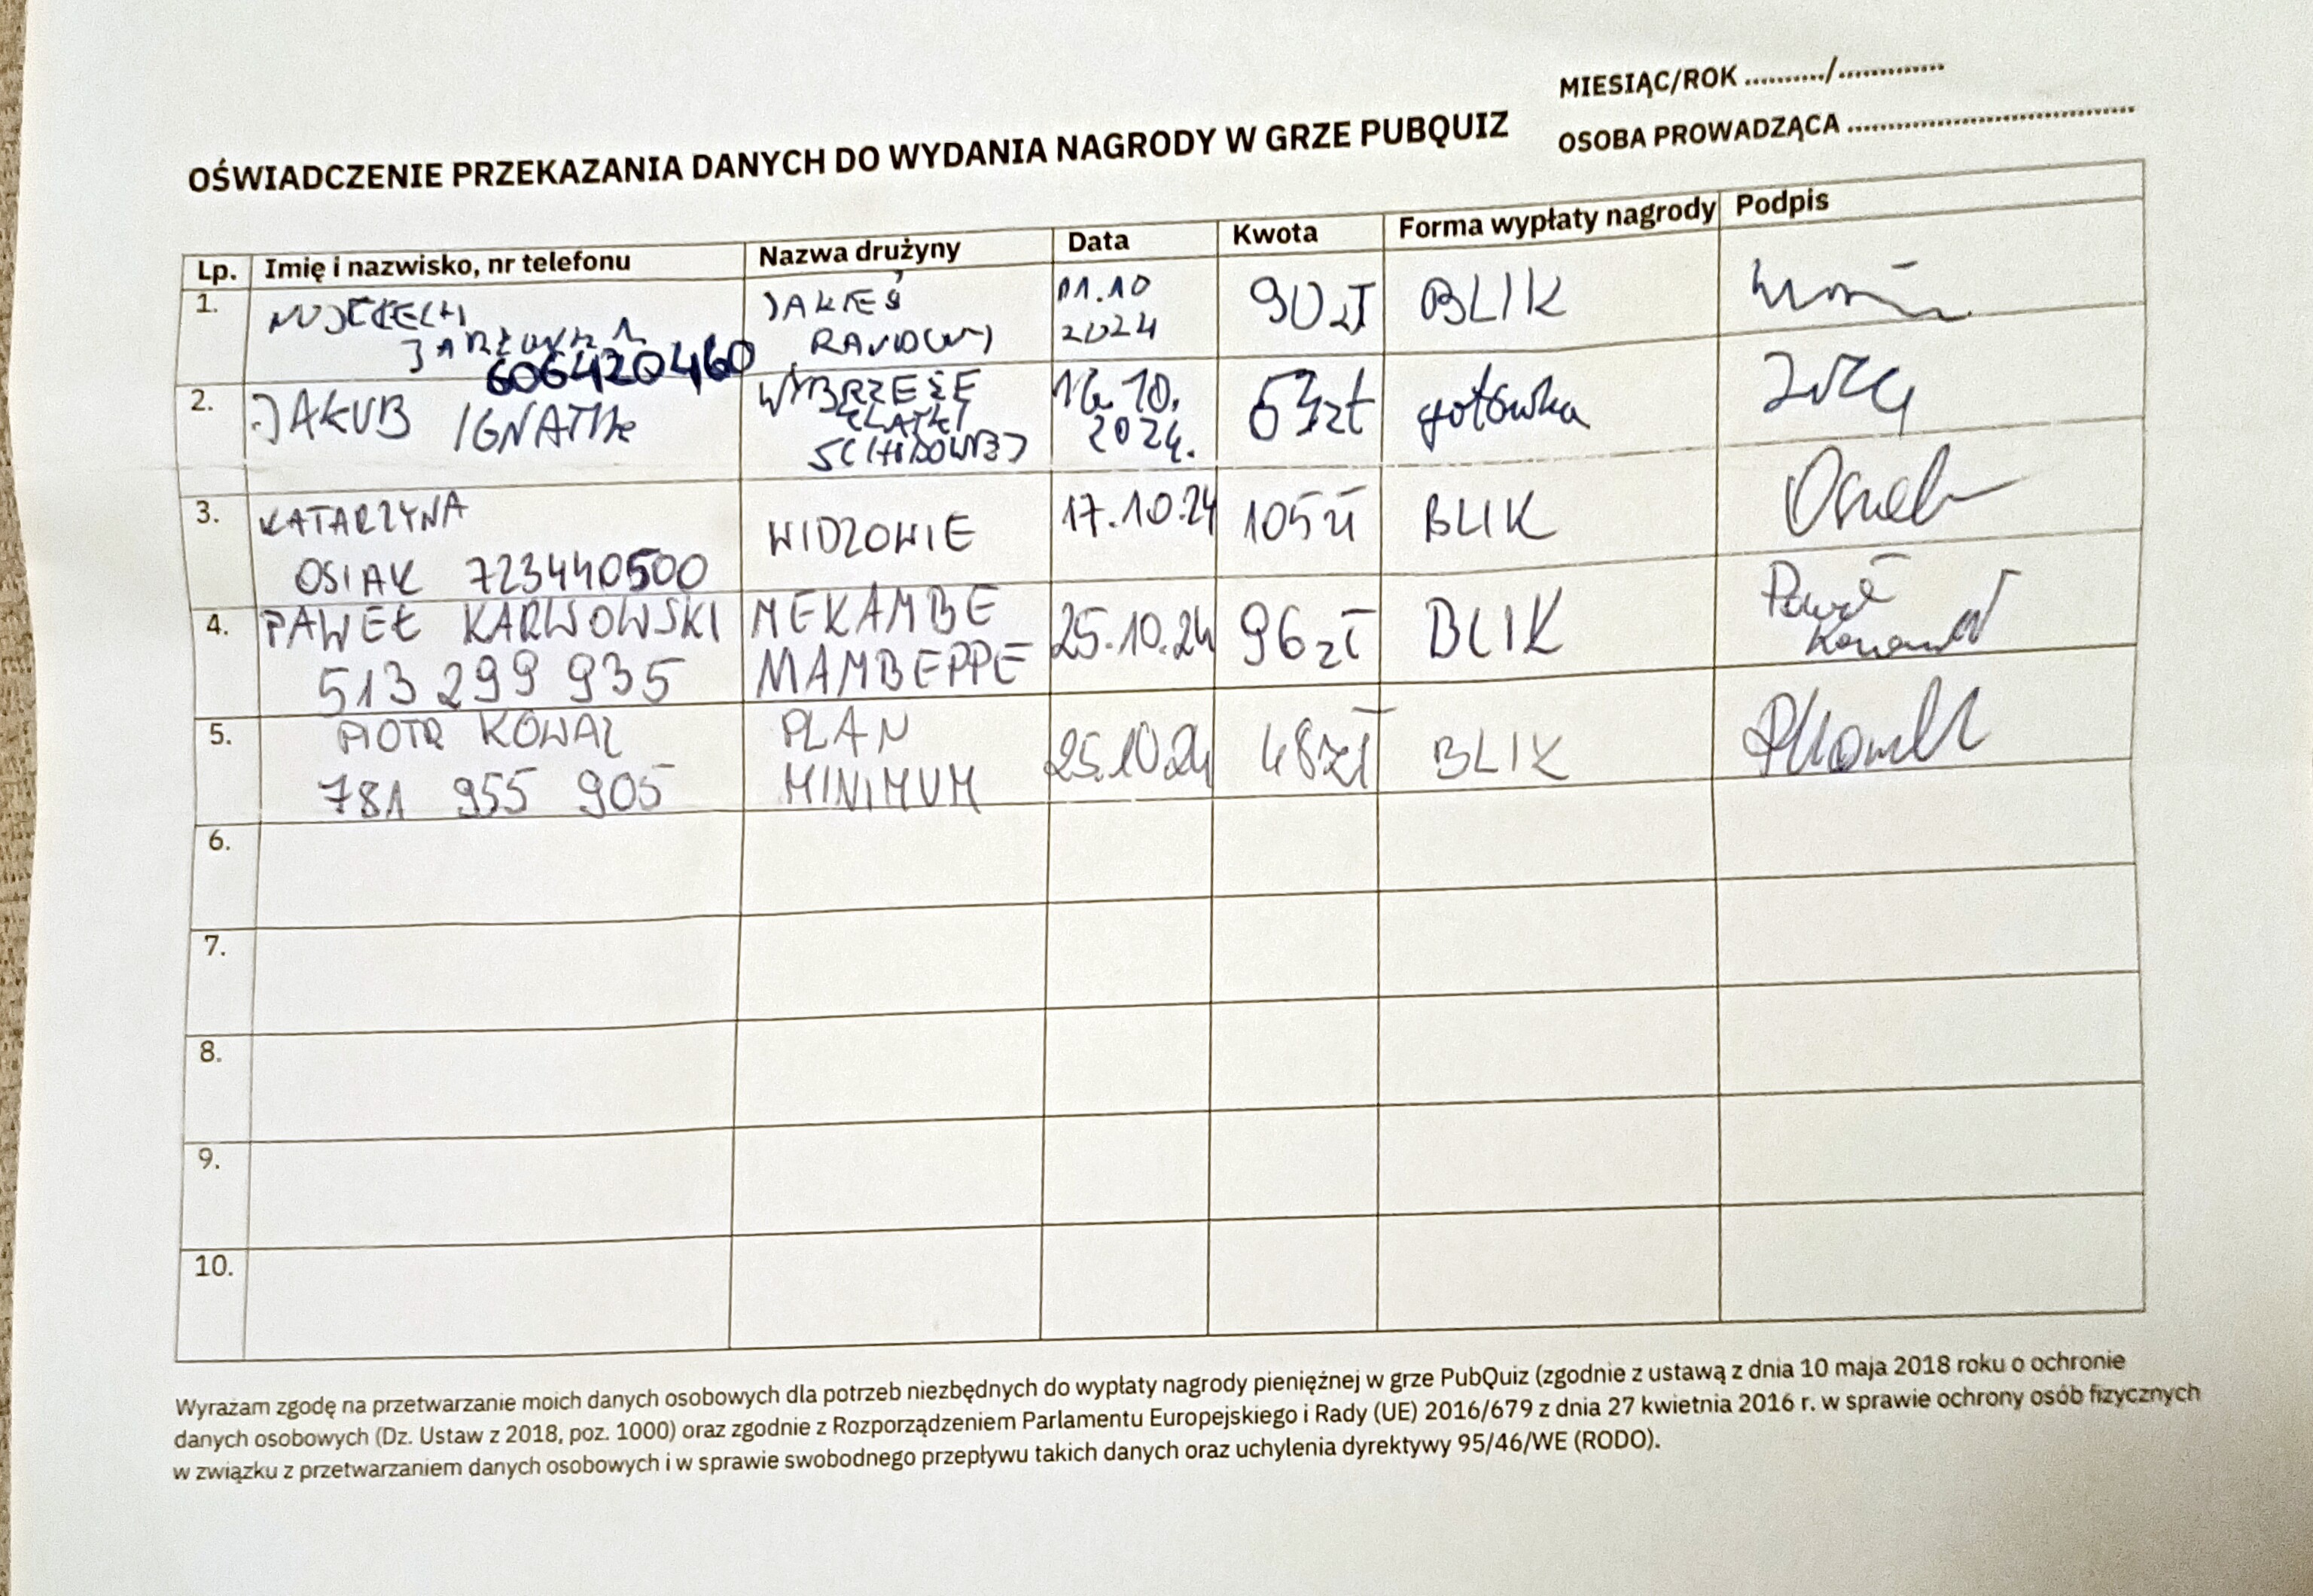 MIESIĄC/ROK ........../.............
OSOBA PROWADZĄCA ...................................
OŚWIADCZENIE PRZEKAZANIA DANYCH DO WYDANIA NAGRODY W GRZE PUBQUIZ
Lp. Imię i nazwisko, nr telefonu Nazwa drużyny Data Kwota Forma wypłaty nagrody Podpis
1. WOJCIECH JAKIEŚ 01.10 90 zł BLIK
RANDOMY 2024
606420460
2. JAKUB WYBRZEŻE 16.10. zł gotówka
KLATKI 2024.
SCHODOWEJ
3. KATARZYNA WIDZOWIE 17.10.24 105 zł BLIK
OSIAK 723440500
4. PAWEŁ KARWOWSKI MEKAMBE 25.10.24 96 zł BLIK Paweł
513 299 935 MAMBEPPE
5. PIOTR KOWAL PLAN 25.10.24 48 zł BLIK
781 955 905 MINIMUM
6.
7.
8.
9.
10.
Wyrażam zgodę na przetwarzanie moich danych osobowych dla potrzeb niezbędnych do wypłaty nagrody pieniężnej w grze PubQuiz (zgodnie z ustawą z dnia 10 maja 2018 roku o ochronie
danych osobowych (Dz. Ustaw z 2018, poz. 1000) oraz zgodnie z Rozporządzeniem Parlamentu Europejskiego i Rady (UE) 2016/679 z dnia 27 kwietnia 2016 r. w sprawie ochrony osób fizycznych
w związku z przetwarzaniem danych osobowych i w sprawie swobodnego przepływu takich danych oraz uchylenia dyrektywy 95/46/WE (RODO).